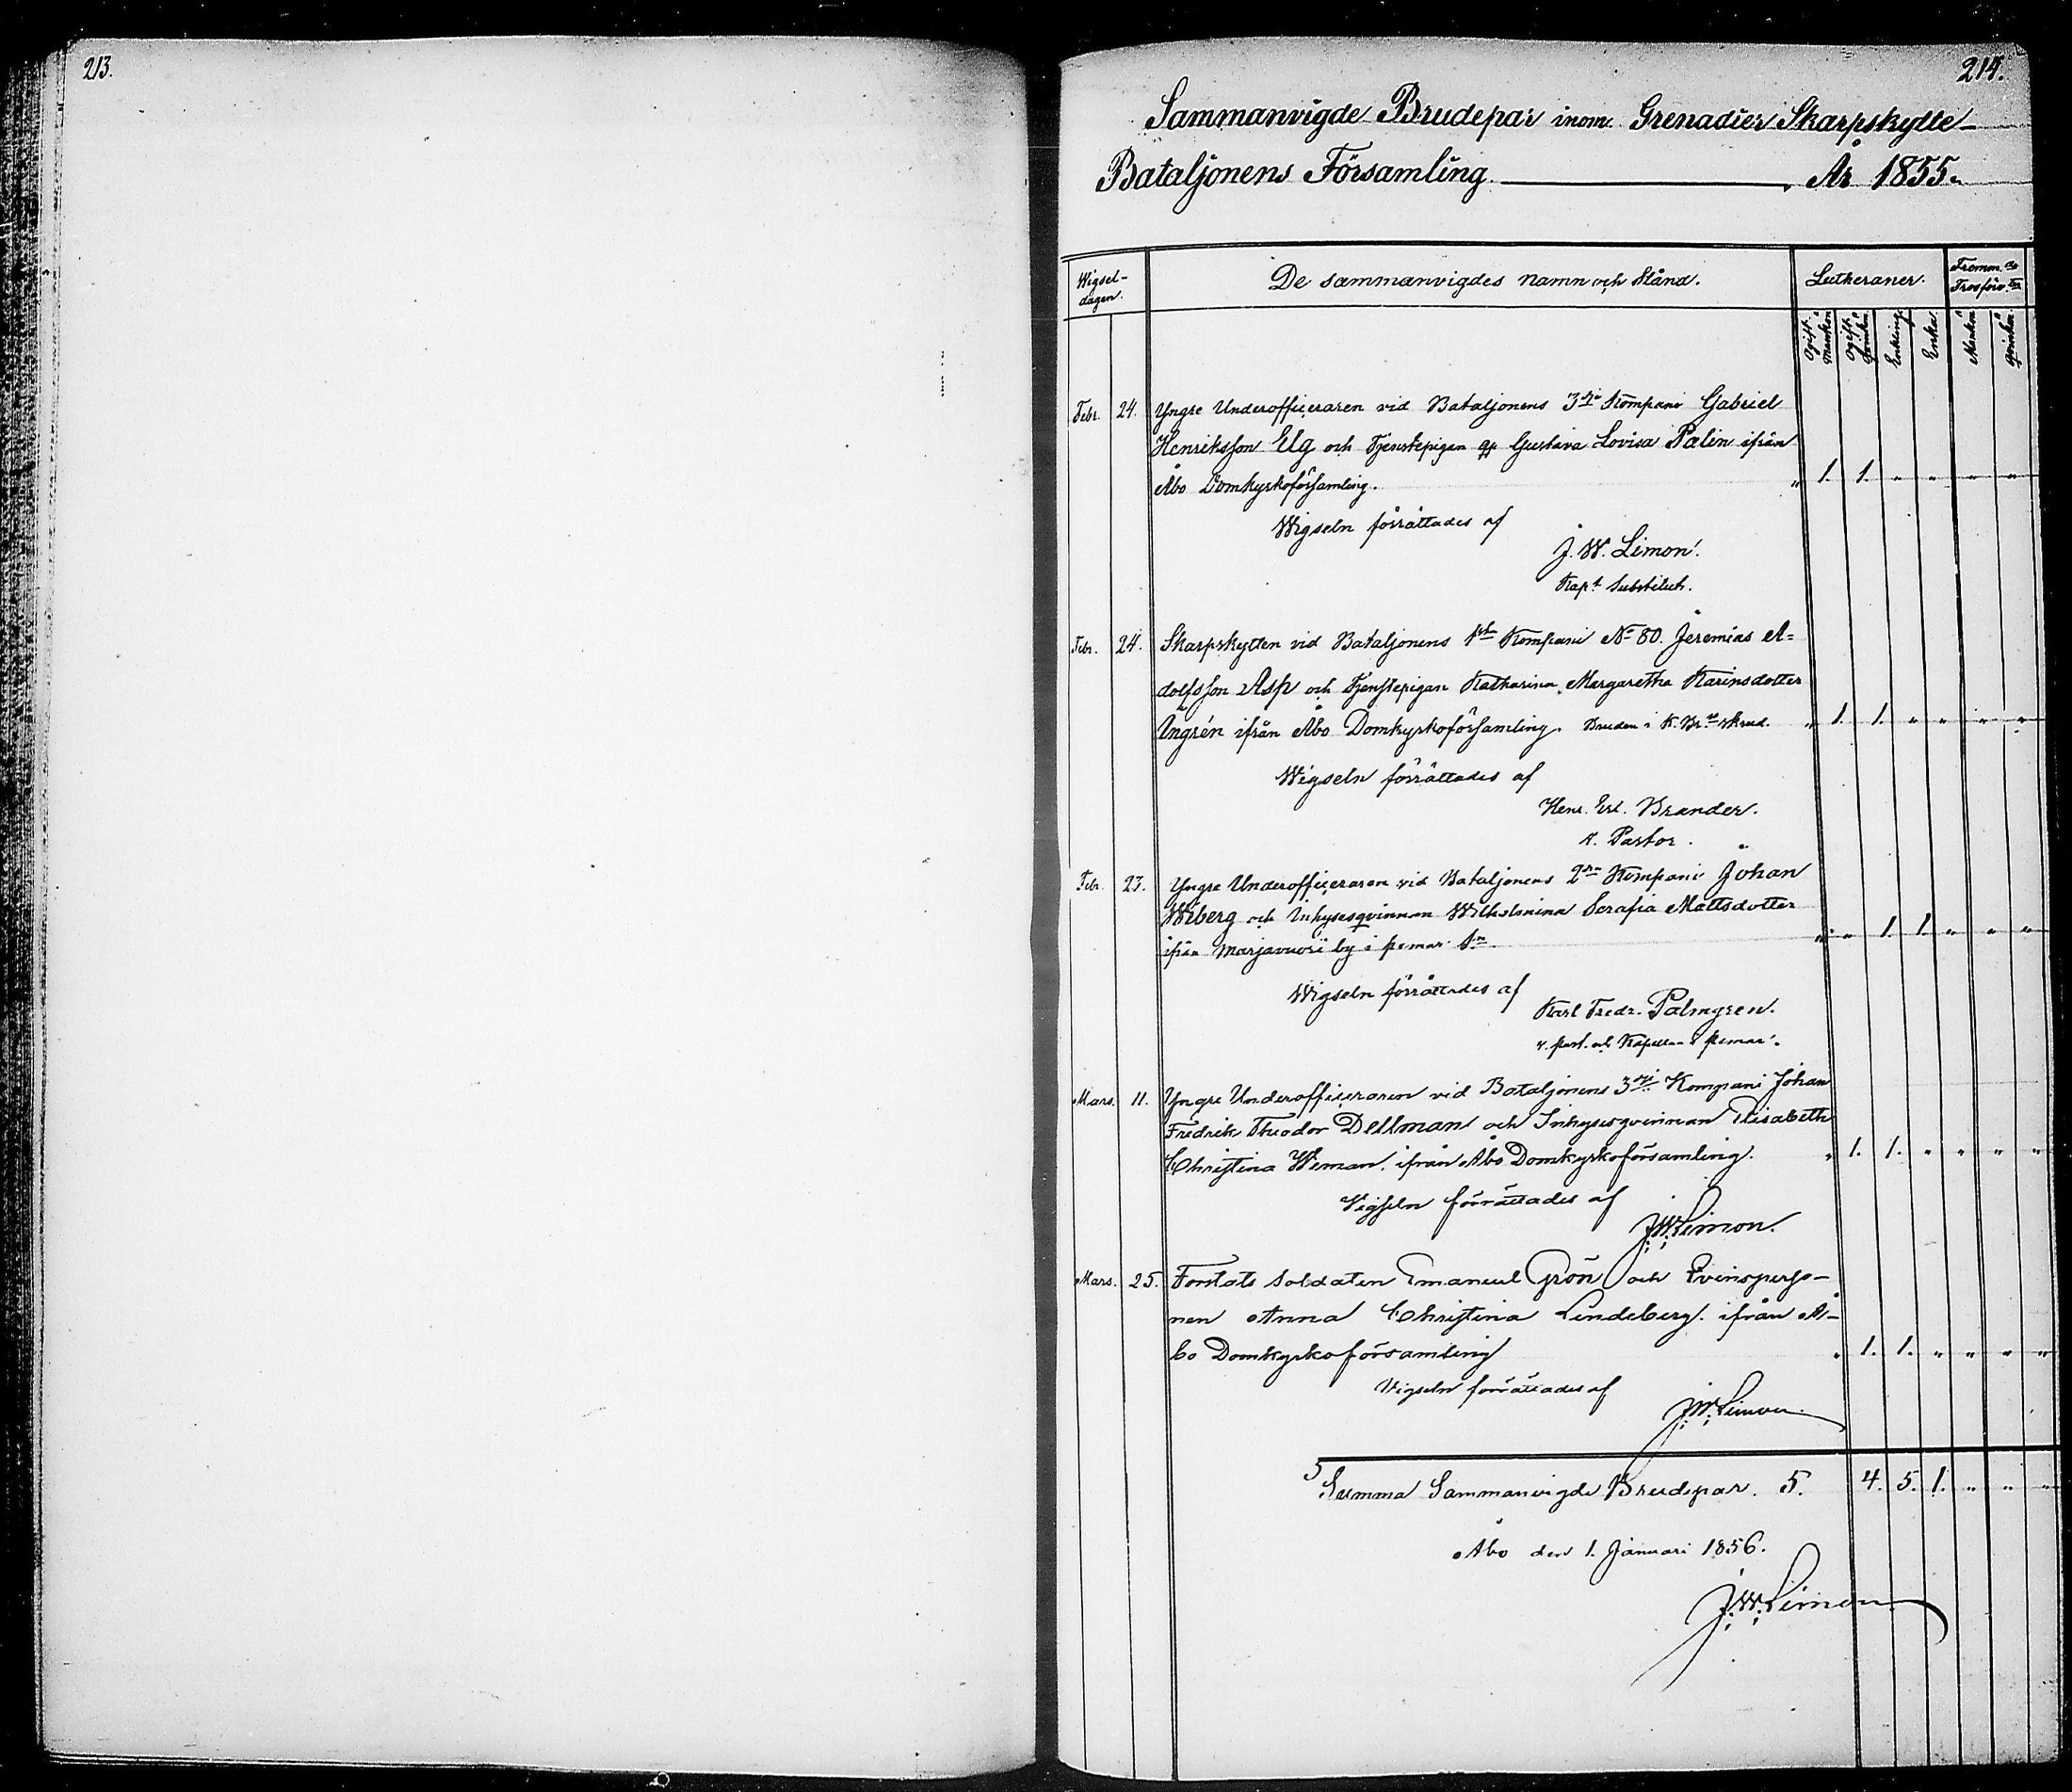 213.
214.
Sammanvigde Brudepar inom Grenadier Skarpskytte-
Bataljonens Församling. År 1855.
Wigsel-
dagen.
De sammanvigdes namn och Stånd.
Lutheraner.
Ogift. Mankön
Ogift. Qvinkön
Enkling
Enka
Mankön
Qvinkön
Febr. 24. Yngre Underofficeraren vid Bataljonens 3dje Kompani Gabriel
Henriksson Elg och Tjenstepigan Gustava Lovisa Palin ifrån
Åbo Domkyrkoförsamling. " 1. 1. " " " "
Wigseln förrättades af
J. W. Limon.
Kapl. Substitut.
Febr. 24. Skarpskytten vid Bataljonens 1sta Kompani No 80. Jeremias A=
dolfsson Asp och Tjenstepigan Katharina Margaretha Karinsdotter
Ungrén ifrån Åbo Domkyrkoförsamling. Bruden i K. Br. skrud. " 1. 1. " " " "
Wigseln förrättades af
Henr. Brander.
v. Pastor.
Febr. 23. Yngre Underofficeraren vid Bataljonens 2dra Kompani Johan
Wiberg och Inhysesqvinnan Wilhelmina Serafia Mattsdotter
ifrån Marjavuori by i Pemar Sn. " " 1. 1. " " "
Wigseln förrättades af
Karl Fredr. Palmgren.
v. past. och Kapellan i Pemar.
Mars. 11. Yngre Underofficeraren vid Bataljonens 3dje Kompani Johan
Fredrik Theodor Dellman och Inhysesqvinnan Elisabeth
Christina Weman. ifrån Åbo Domkyrkoförsamling. " 1. 1. " " " "
Vigseln förrättades af
J. W. Limon.
Mars. 25. Forstats soldaten Emanuel Grön och Qvinsperso-
nen Anna Christina Lindeberg. ifrån Å-
bo Domkyrkoförsamling " 1. 1. " " " "
Vigseln förrättades af
J. W. Limon
5 Summa Sammanvigde Brudepar. 5. 4. 5. 1. " " "
Åbo den 1. Januari 1856.
J. W. Limon